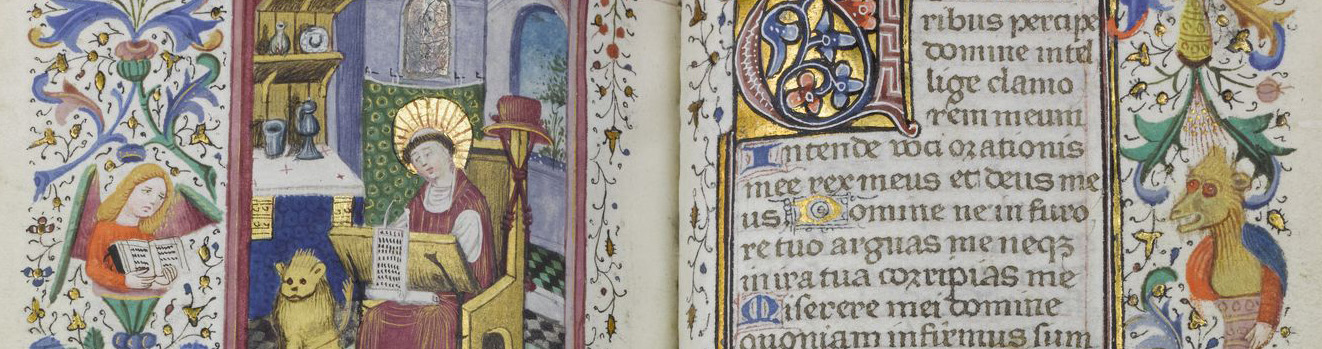 ribus percipe
domine intel
lige clamo
rem meum
Intende voci orationis
mee rex meus et deus me
us Domine ne in furo
re tuo arguas me neqȝ
in ira tua corripias me
Miserere mei domine
quoniam infirmus sum